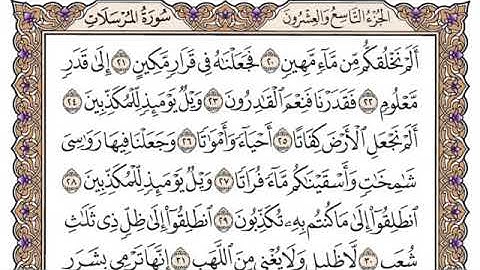 الجزء التاسع والعشرون سورة المرسلات
أَلَمْ نَخْلُقكُّم مِّن مَّآءٍ مَّهِينٍ ۝٢٠ فَجَعَلْنَٰهُ فِى قَرَارٍ مَّكِينٍ ۝٢١ إِلَىٰ قَدَرٍ
مَّعْلُومٍ ۝٢٢ فَقَدَرْنَا فَنِعْمَ ٱلْقَٰدِرُونَ ۝٢٣ وَيْلٌ يَوْمَئِذٍ لِّلْمُكَذِّبِينَ ۝٢٤
أَلَمْ نَجْعَلِ ٱلْأَرْضَ كِفَاتًا ۝٢٥ أَحْيَآءً وَأَمْوَٰتًا ۝٢٦ وَجَعَلْنَا فِيهَا رَوَٰسِىَ
شَٰمِخَٰتٍ وَأَسْقَيْنَٰكُم مَّآءً فُرَاتًا ۝٢٧ وَيْلٌ يَوْمَئِذٍ لِّلْمُكَذِّبِينَ ۝٢٨
ٱنطَلِقُوٓا۟ إِلَىٰ مَا كُنتُم بِهِۦ تُكَذِّبُونَ ۝٢٩ ٱنطَلِقُوٓا۟ إِلَىٰ ظِلٍّ ذِى ثَلَٰثِ
شُعَبٍ ۝٣٠ لَّا ظَلِيلٍ وَلَا يُغْنِى مِنَ ٱللَّهَبِ ۝٣١ إِنَّهَا تَرْمِى بِشَرَرٍ